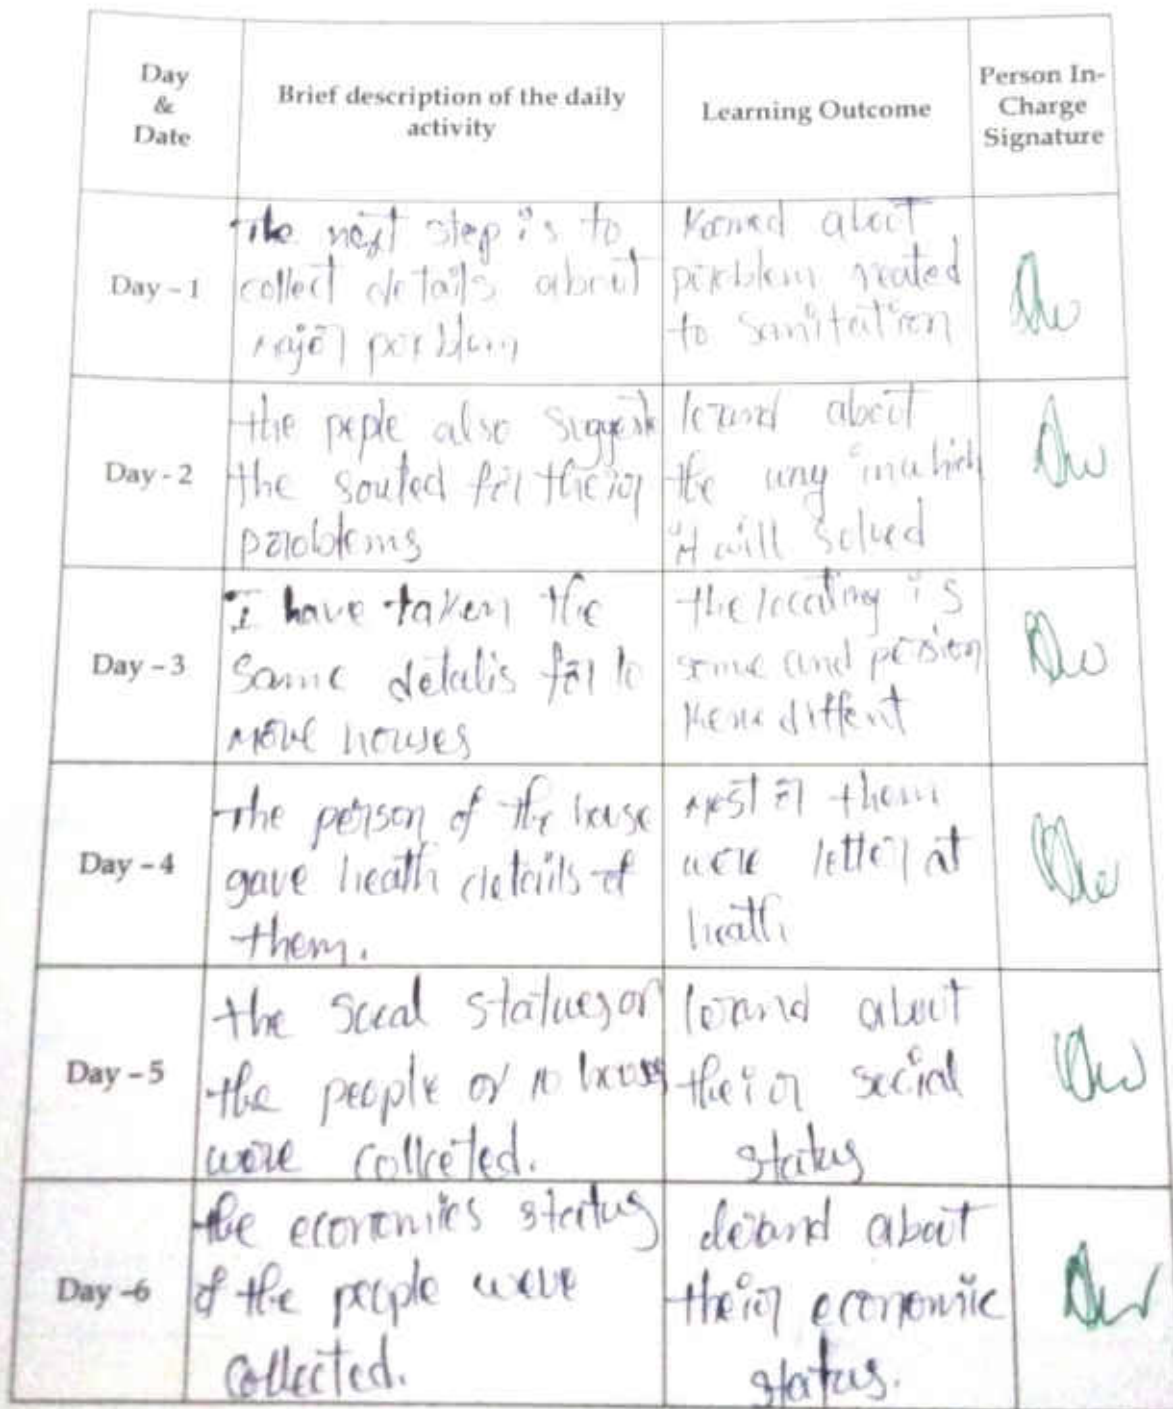 Day
&
Date
Brief description of the daily
activity
Learning Outcome
Person In-
Charge
Signature
Day - 1
The next step is to
collect details about
major
about
problem
to sanitation
Day - 2
the peple also suggest
the souted for their
problems
about
the way in which
it will solved
Day - 3
I have taken the
same detalis for 10
more houses
the is
same and
diffent
Day - 4
the person of the house
gave heath details of
them.
most of them
were at
heath
Day - 5
the social statues of
the people of 10 houses
were collceted.
about
their social
status
Day -6
the economics status
of the people were
collected.
about
their economic
status.